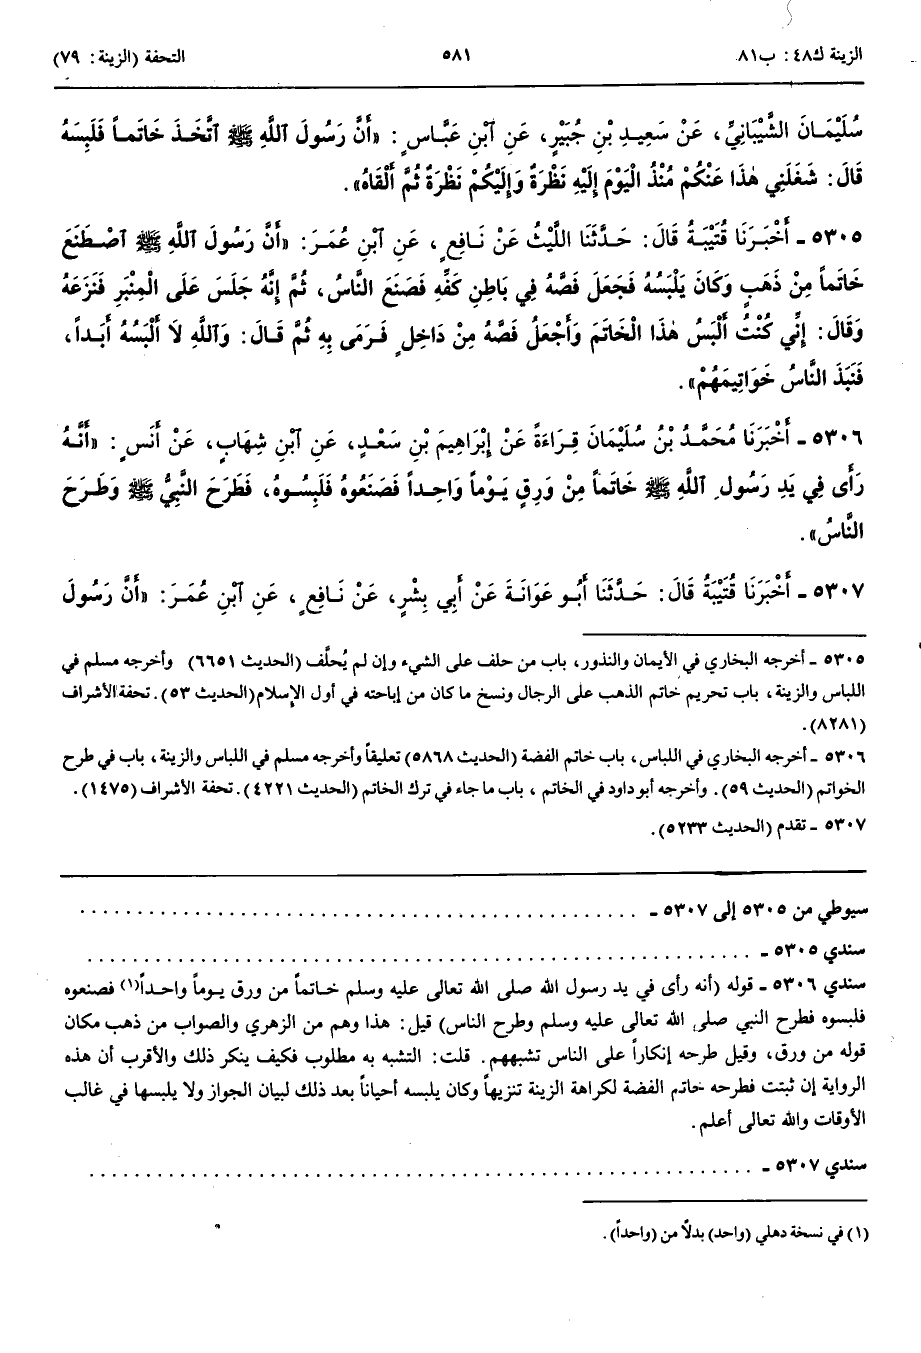 الزينة ك٤٨: ب٨١ ٥٨١ التحفة (الزينة: ٧٩)
سُلَيْمَانَ الشَّيْبَانِيِّ، عَنْ سَعِيدِ بْنِ جُبَيْرٍ، عَنِ ٱبْنِ عَبَّاسٍ: «أَنَّ رَسُولَ ٱللَّهِ ﷺ ٱتَّخَذَ خَاتَماً فَلَبِسَهُ
قَالَ: شَغَلَنِي هٰذَا عَنْكُمْ مُنْذُ الْيَوْمَ إِلَيْهِ نَظْرَةٌ وَإِلَيْكُمْ نَظْرَةٌ ثُمَّ أَلْقَاهُ».
٥٣٠٥ ـ أَخْبَرَنَا قُتَيْبَةُ قَالَ: حَدَّثَنَا اللَّيْثُ عَنْ نَافِعٍ، عَنِ ٱبْنِ عُمَرَ: «أَنَّ رَسُولَ ٱللَّهِ ﷺ ٱصْطَنَعَ
خَاتَماً مِنْ ذَهَبٍ وَكَانَ يَلْبَسُهُ فَجَعَلَ فَصَّهُ فِي بَاطِنِ كَفِّهِ فَصَنَعَ النَّاسُ، ثُمَّ إِنَّهُ جَلَسَ عَلَى الْمِنْبَرِ فَنَزَعَهُ
وَقَالَ: إِنِّي كُنْتُ أَلْبَسُ هٰذَا الْخَاتَمَ وَأَجْعَلُ فَصَّهُ مِنْ دَاخِلٍ فَرَمَى بِهِ ثُمَّ قَالَ: وَٱللَّهِ لَا أَلْبَسُهُ أَبَداً،
فَنَبَذَ النَّاسُ خَوَاتِيمَهُمْ».
٥٣٠٦ ـ أَخْبَرَنَا مُحَمَّدُ بْنُ سُلَيْمَانَ قِرَاءَةً عَنْ إِبْرَاهِيمَ بْنِ سَعْدٍ، عَنِ ٱبْنِ شِهَابٍ، عَنْ أَنَسٍ: «أَنَّهُ
رَأَى فِي يَدِ رَسُولِ ٱللَّهِ ﷺ خَاتَماً مِنْ وَرِقٍ يَوْماً وَاحِداً فَصَنَعُوهُ فَلَبِسُوهُ، فَطَرَحَ النَّبِيُّ ﷺ وَطَرَحَ
النَّاسُ».
٥٣٠٧ ـ أَخْبَرَنَا قُتَيْبَةُ قَالَ: حَدَّثَنَا أَبُو عَوَانَةَ عَنْ أَبِي بِشْرٍ، عَنْ نَافِعٍ، عَنِ ٱبْنِ عُمَرَ: «أَنَّ رَسُولَ
٥٣٠٥ ـ أخرجه البخاري في الأيمان والنذور، باب من حلف على الشيء وإن لم يُحلَّف (الحديث ٦٦٥١) وأخرجه مسلم في
اللباس والزينة، باب تحريم خاتم الذهب على الرجال ونسخ ما كان من إباحته في أول الإسلام(الحديث ٥٣). تحفة الأشراف
(٨٢٨١).
٥٣٠٦ ـ أخرجه البخاري في اللباس، باب خاتم الفضة (الحديث ٥٨٦٨) تعليقاً وأخرجه مسلم في اللباس والزينة، باب في طرح
الخواتم (الحديث ٥٩). وأخرجه أبو داود في الخاتم، باب ما جاء في ترك الخاتم (الحديث ٤٢٢١). تحفة الأشراف (١٤٧٥).
٥٣٠٧ ـ تقدم (الحديث ٥٢٣٣).
سيوطي من ٥٣٠٥ إلى ٥٣٠٧ ـ ........................................
سندي ٥٣٠٥ ـ ................................................
سندي ٥٣٠٦ ـ قوله (أنه رأى في يد رسول الله صلى الله تعالى عليه وسلم خاتماً من ورق يوماً واحداً(١) فصنعوه
فلبسوه فطرح النبي صلى الله تعالى عليه وسلم وطرح الناس) قيل: هذا وهم من الزهري والصواب من ذهب مكان
قوله من ورق، وقيل طرحه إنكاراً على الناس تشبههم. قلت: التشبه به مطلوب فكيف ينكر ذلك والأقرب أن هذه
الرواية إن ثبتت فطرحه خاتم الفضة لكراهة الزينة تنزيهاً وكان يلبسه أحياناً بعد ذلك لبيان الجواز ولا يلبسها في غالب
الأوقات والله تعالى أعلم.
سندي ٥٣٠٧ ـ ................................................
(١) في نسخة دهلي (واحد) بدلاً من (واحداً).